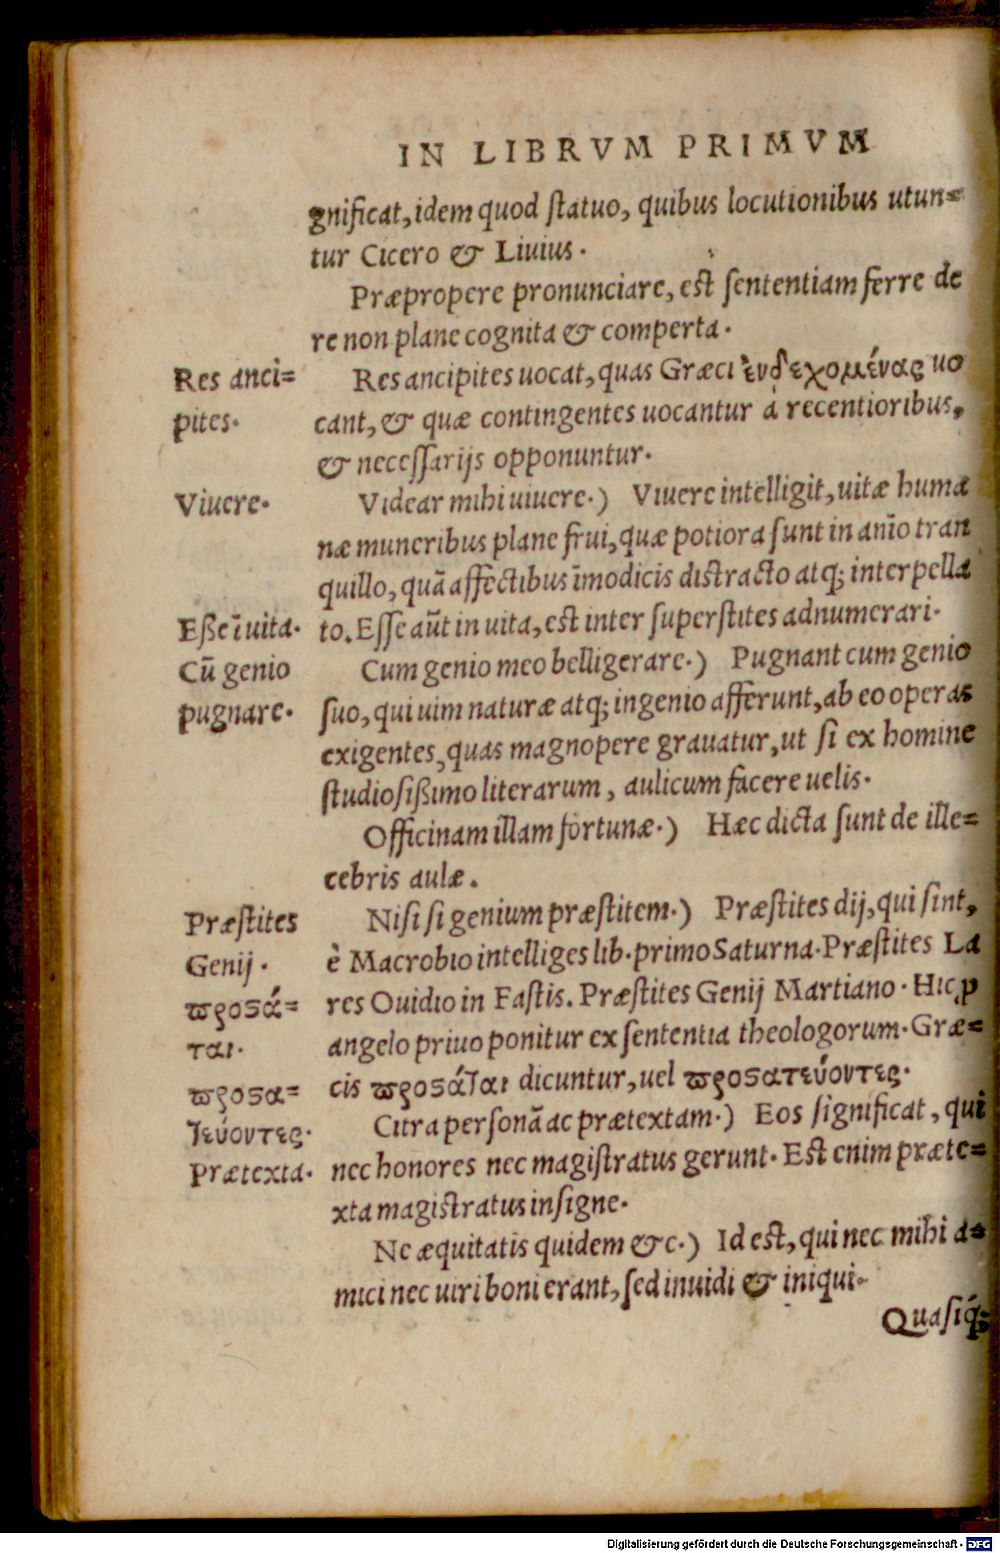 IN LIBRVM PRIMVM
gnificat, idem quod ſtatuo, quibus locutionibus utun=
tur Cicero & Liuius.
Præpropere pronunciare, est ſententiam ferre de
re non plane cognita & comperta.
Res anci=
pites.
Res ancipites uocat, quas Græci ἐνδεχομένας uo
cant, & quæ contingentes uocantur à recentioribus,
& neceſſarijs opponuntur.
Viuere.
Videar mihi uiuere.) Viuere intelligit, uitæ huma
næ muneribus plane frui, quæ potiora ſunt in anīo tran
quillo, quā affectibus īmodicis distracto atq; interpella
Eße ī uita.
to. Eſſe aūt in uita, est inter ſuperſtites adnumerari.
Cū genio
pugnare.
Cum genio meo belligerare.) Pugnant cum genio
ſuo, qui uim naturæ atq; ingenio afferunt, ab eo operas
exigentes, quas magnopere grauatur, ut ſi ex homine
ſtudioſißimo literarum, aulicum facere uelis.
Officinam illam fortunæ.) Hæc dicta ſunt de ille=
cebris aulæ.
Præſtites
Genij.
Niſi ſi genium præſtitem.) Præſtites dij, qui ſint,
è Macrobio intelliges lib. primo Saturna. Præſtites La
ϖροσά=
ται.
res Ouidio in Faſtis. Præſtites Genij Martiano. Hic, p
angelo priuo ponitur ex ſententia theologorum. Græ=
ϖροσα=
τεύοντες.
cis ϖροσάται dicuntur, uel ϖροσατεύοντες.
Citra perſonā ac prætextam.) Eos ſignificat, qui
Prætexta.
nec honores nec magiſtratus gerunt. Est enim præte=
xta magistratus inſigne.
Ne æquitatis quidem &c.) Id est, qui nec mihi a=
mici nec uiri boni erant, ſed inuidi & iniqui.
Quaſiq́;
Digitalisierung gefördert durch die Deutsche Forschungsgemeinschaft - DFG